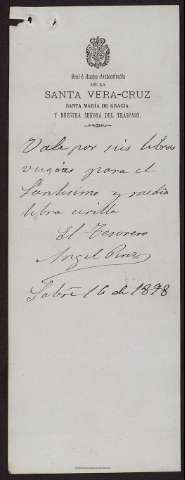 Real é Ilustre Archicofradía
DE LA
SANTA VERA-CRUZ
SANTA MARÍA DE GRACIA
Y NUESTRA SEÑORA DEL TRASPASO.
Vale por seis libras
virgenes para el
Santisimo y media
libra
El Tesorero
Angel
16 de 1898